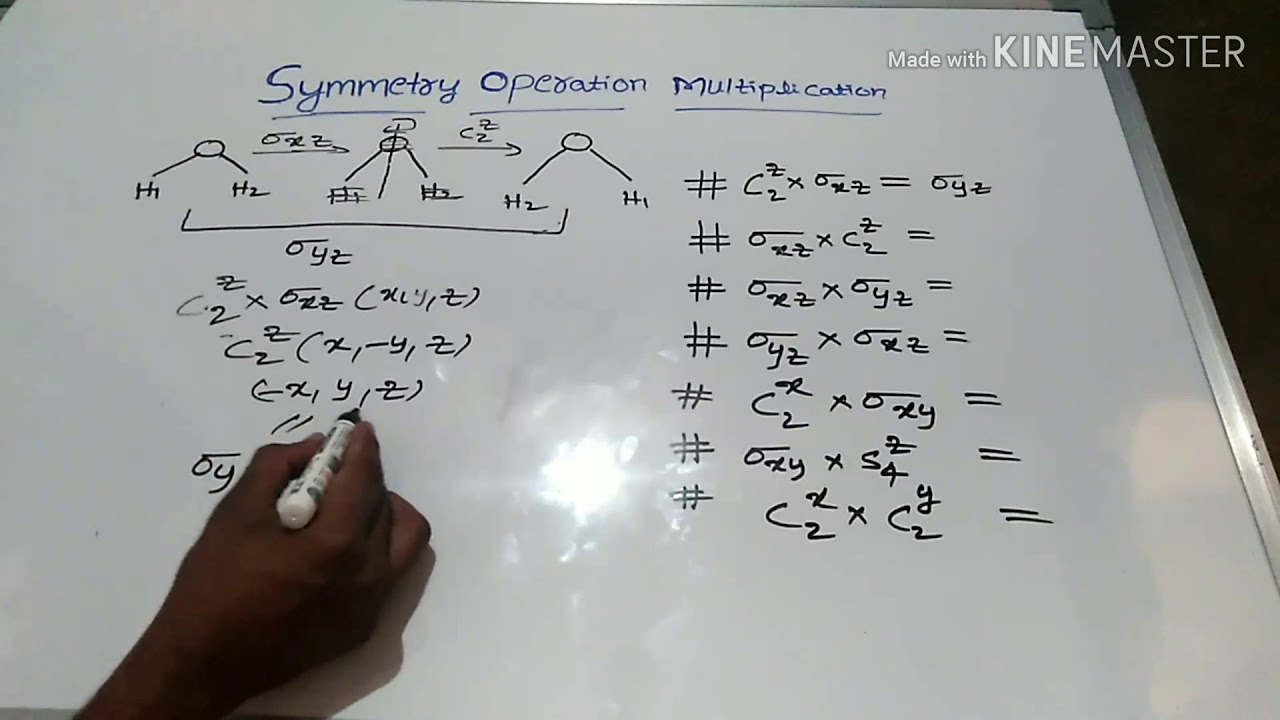 Made with KINEMASTER
Symmetry Operation Multiplication
σxz C₂ᶻ
H₁ H₂ H₁ H₂ H₂ H₁
σyz
C₂ᶻ × σxz (x, y, z)
C₂ᶻ (x, -y, z)
(-x, y, z)
σy
# C₂ᶻ × σxz = σyz
# σxz × C₂ᶻ =
# σxz × σyz =
# σyz × σxz =
# C₂ˣ × σxy =
# σxy × S₄ᶻ =
# C₂ˣ × C₂ʸ =